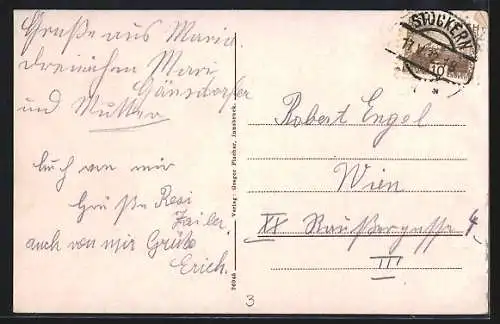 Grüße aus Maria
dreieichen Mari
Gänsdorfer
und Mutter
Auch von mir
Grüße Resi
Zailer.
auch von mir Grüße
Erich.
Verlag: Gregor Fischer, Innsbruck.
3
STOCKERN
10
Robert Engel
Wien
XX
4
III